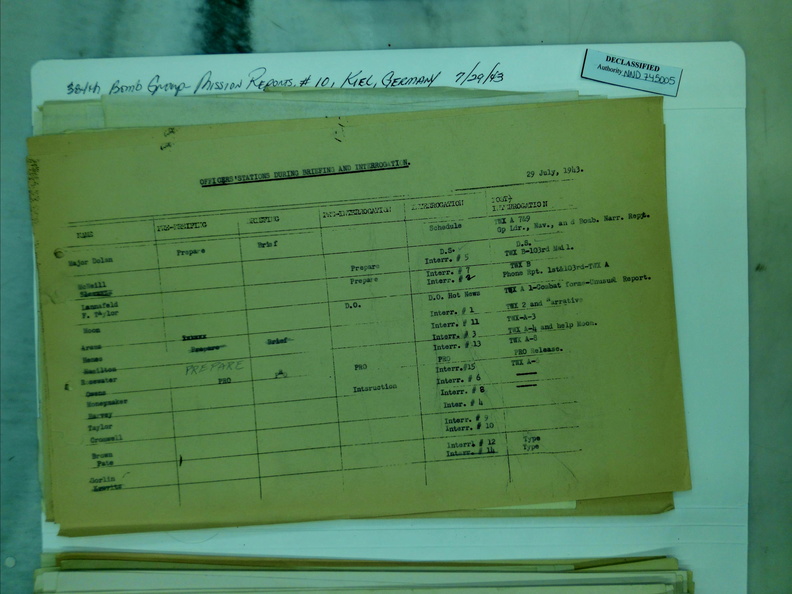 384th Bomb Group Mission Reports, # 10, Kiel, Germany 7/29/43
DECLASSIFIED
Authority NND 745005
OFFICERS' STATIONS DURING BRIEFING AND INTERROGATION.
29 July, 1943.
NAME PRE-BRIEFING BRIEFING PRE-INTERROGATION INTERROGATION POST-INTERROGATION
Major Dolan Prepare Brief Schedule TWX A 789
Op Ldr., Nav., and Bomb. Narr. Rept.
D.S. D.S.
McNeill Prepare Interr. # 5 TWX B-103rd Mail.
Prepare Interr. # 7 TWX B
Interr. # 2 Phone Rpt. 1st&103rd-TWX A
Lansfeld D.O. D.O. Hot News TWX A 1-Combat Forms-Unusual Report.
F. Taylor
Moon Interr. # 1 TWX 2 and "arrative
Interr. # 11 TWX-A-3
Prepare Brief Interr. # 3 TWX A-4 and help Moon.
Hamilton Interr. # 13 TWX A-8
PREPARE PRO PRO PRO Release.
PRO Interr.#15 TWX A-
Owens Interaction Interr. # 6
Honeymaker Interr. # 8
Harvey Inter. # 4
Taylor
Cromwell Interr. # 9
Interr. # 10
Brown Interr. # 12 Type
Pate Interr. # 14 Type
Gorlin